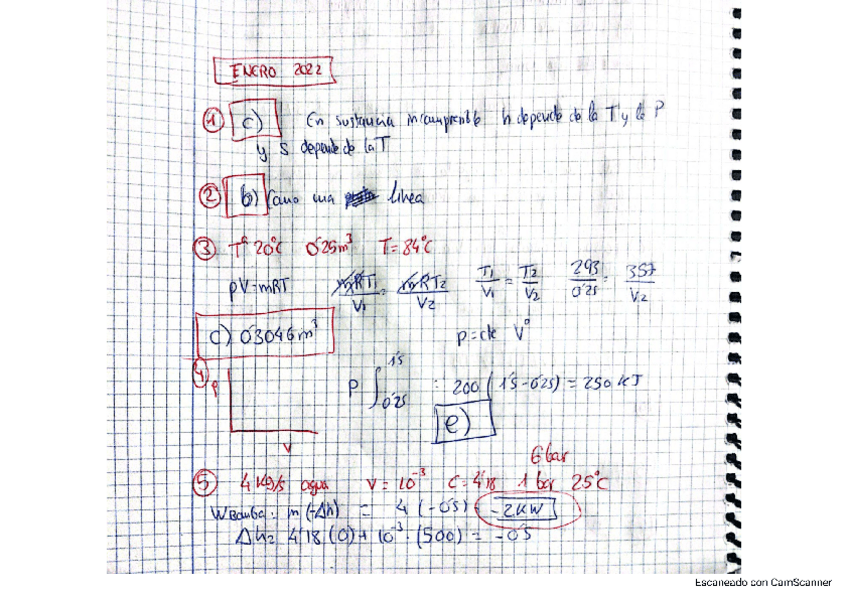 ENERO 2022
① c) En sustancia incomprensible h depende de la T y la P
y S depende de la T
② b) Como una línea
③ Tª 20°C 0'25m³ T = 84°C
pV = mRT mRT₁/V₁ = mRT₂/V₂ T₁/V₁ = T₂/V₂ 293/0'25 = 357/V₂
c) 0'3046 m³ p = cte
④ P V P ∫ 0'25 1'5 : 200 (1'5 - 0'25) = 250 KJ
e)
6 bar
⑤ 4 Kg/s agua V = 10⁻³ C = 4'18 1 bar 25°C
W Bomba: m (-Δh) = 4 (-0'5) -2KW
Δh = 4'18 (0) + 10⁻³ · (500) = -0'5
Escaneado con CamScanner